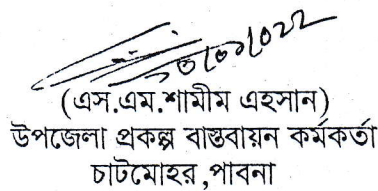 (এস.এম.শামীম এহসান)
উপজেলা প্রকল্প বাস্তবায়ন কর্মকর্তা
চাটমোহর,পাবনা